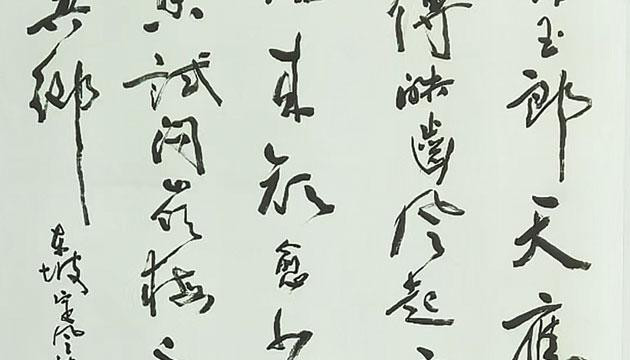 玉郎天應
傳皓齒風起
來顏愈少
試問嶺梅
鄉
東坡定風